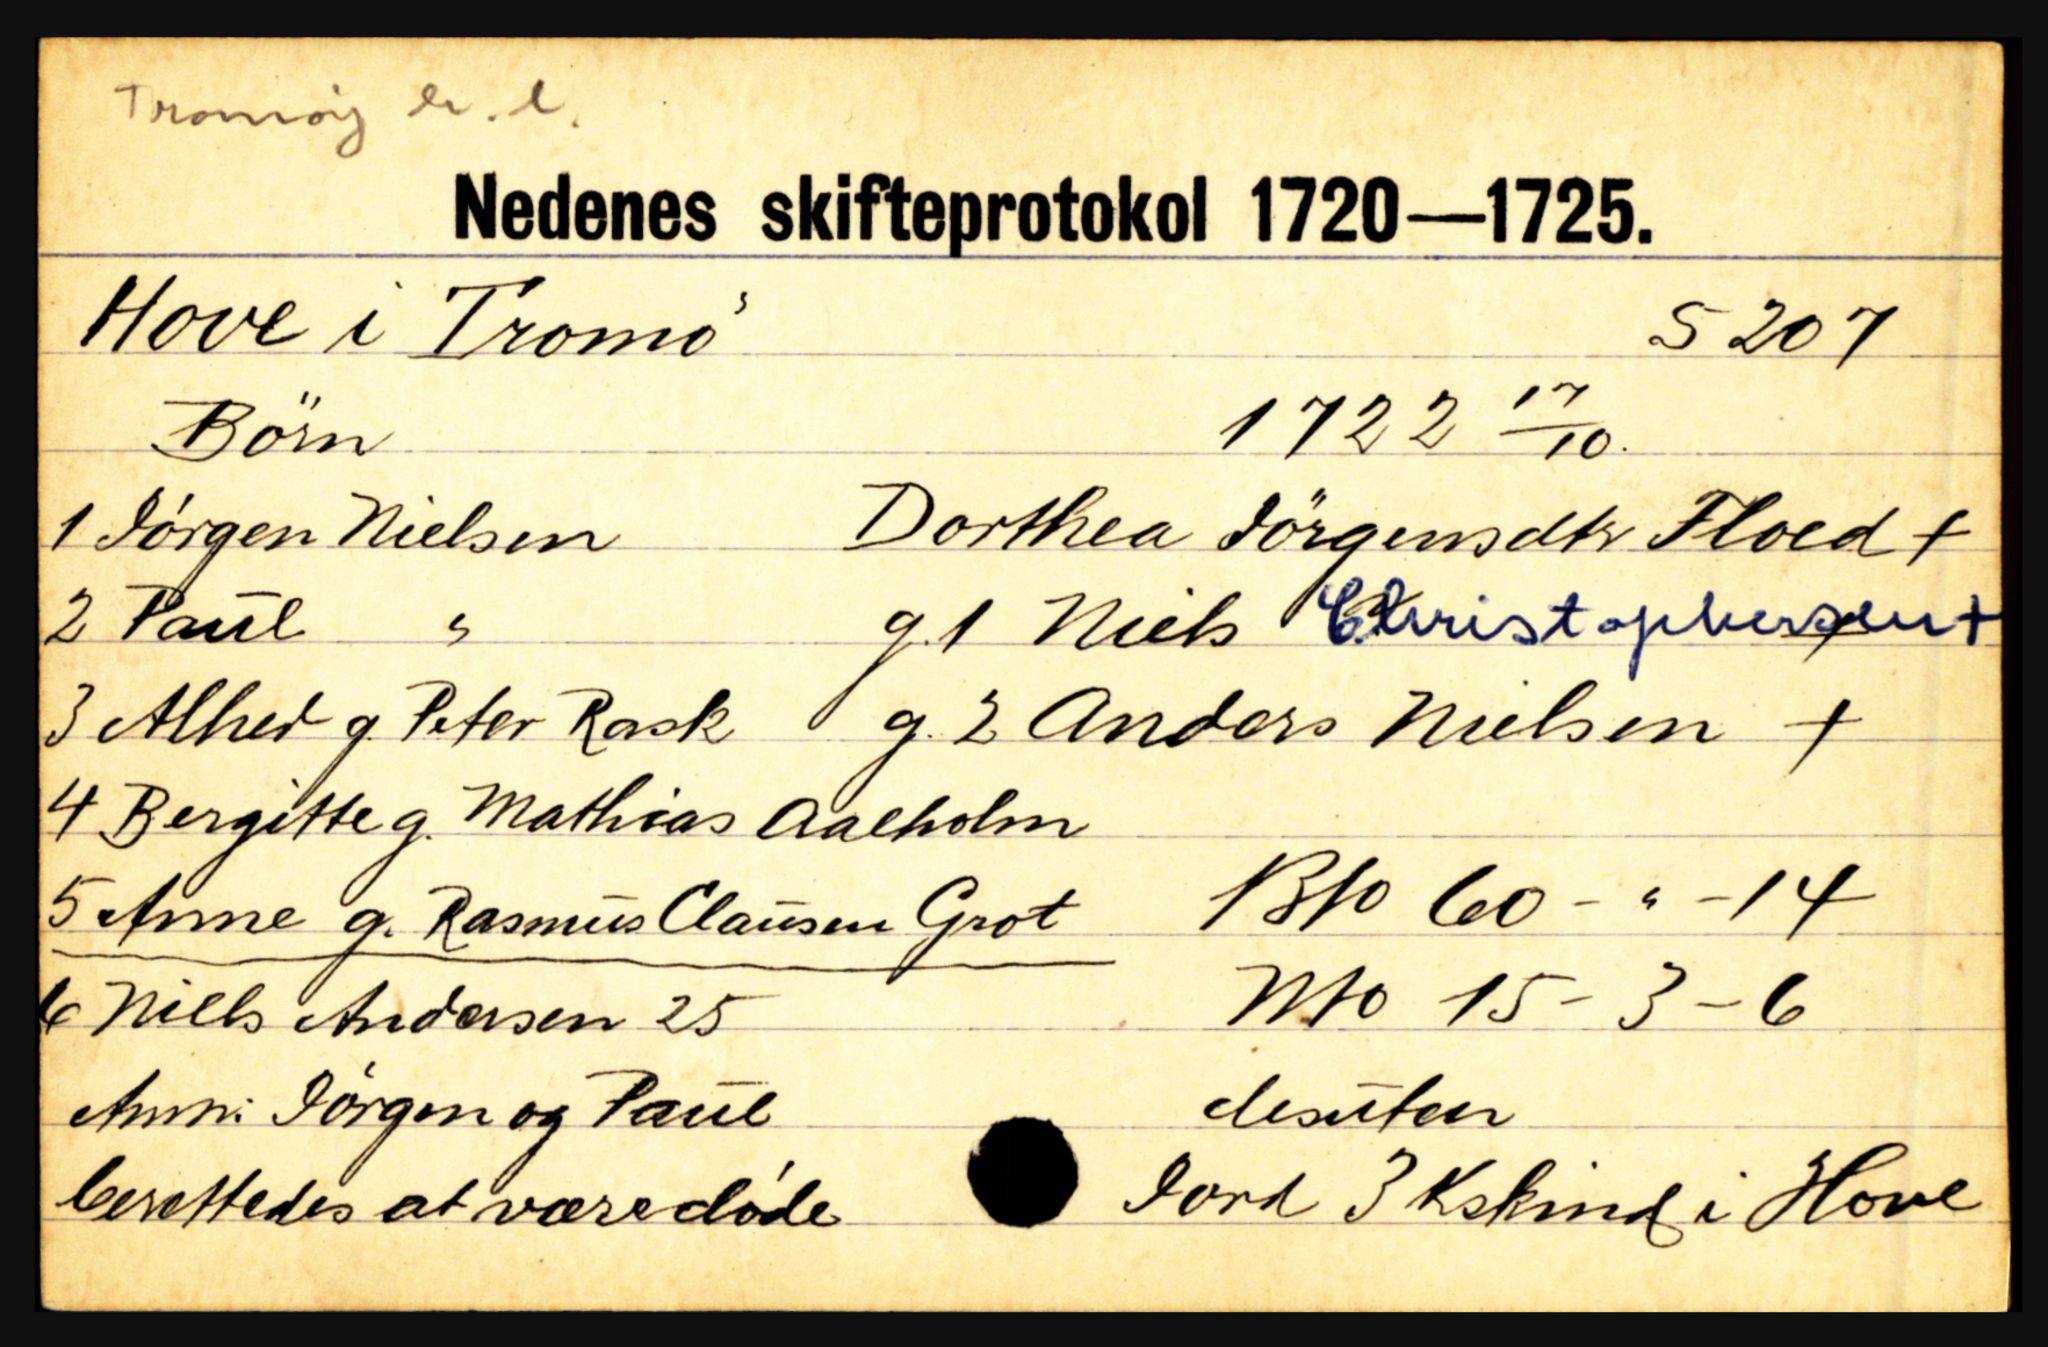 Tromøy
Nedenes skifteprotokol 1720—1725.
Hove i Tromö S 207
Börn 1722 17/10.
1 Jörgen Nielsen Dorthea Jörgensdtr Floed +
2 Paul " g. 1 Niels Christophersen +
3 Alhed g. Peter Rask g. 2 Anders Nielsen +
4 Bergitte g. Mathias Aalholm
5 Anne g. Rasmus Clausen Grot Bfo 60 - " - 14
6 Niels Andersen 25 Nfo 15 - 3 - 6
Anm: Jörgen og Paul desuten
berettedes at være döde Jord 3 Kskind i Hove